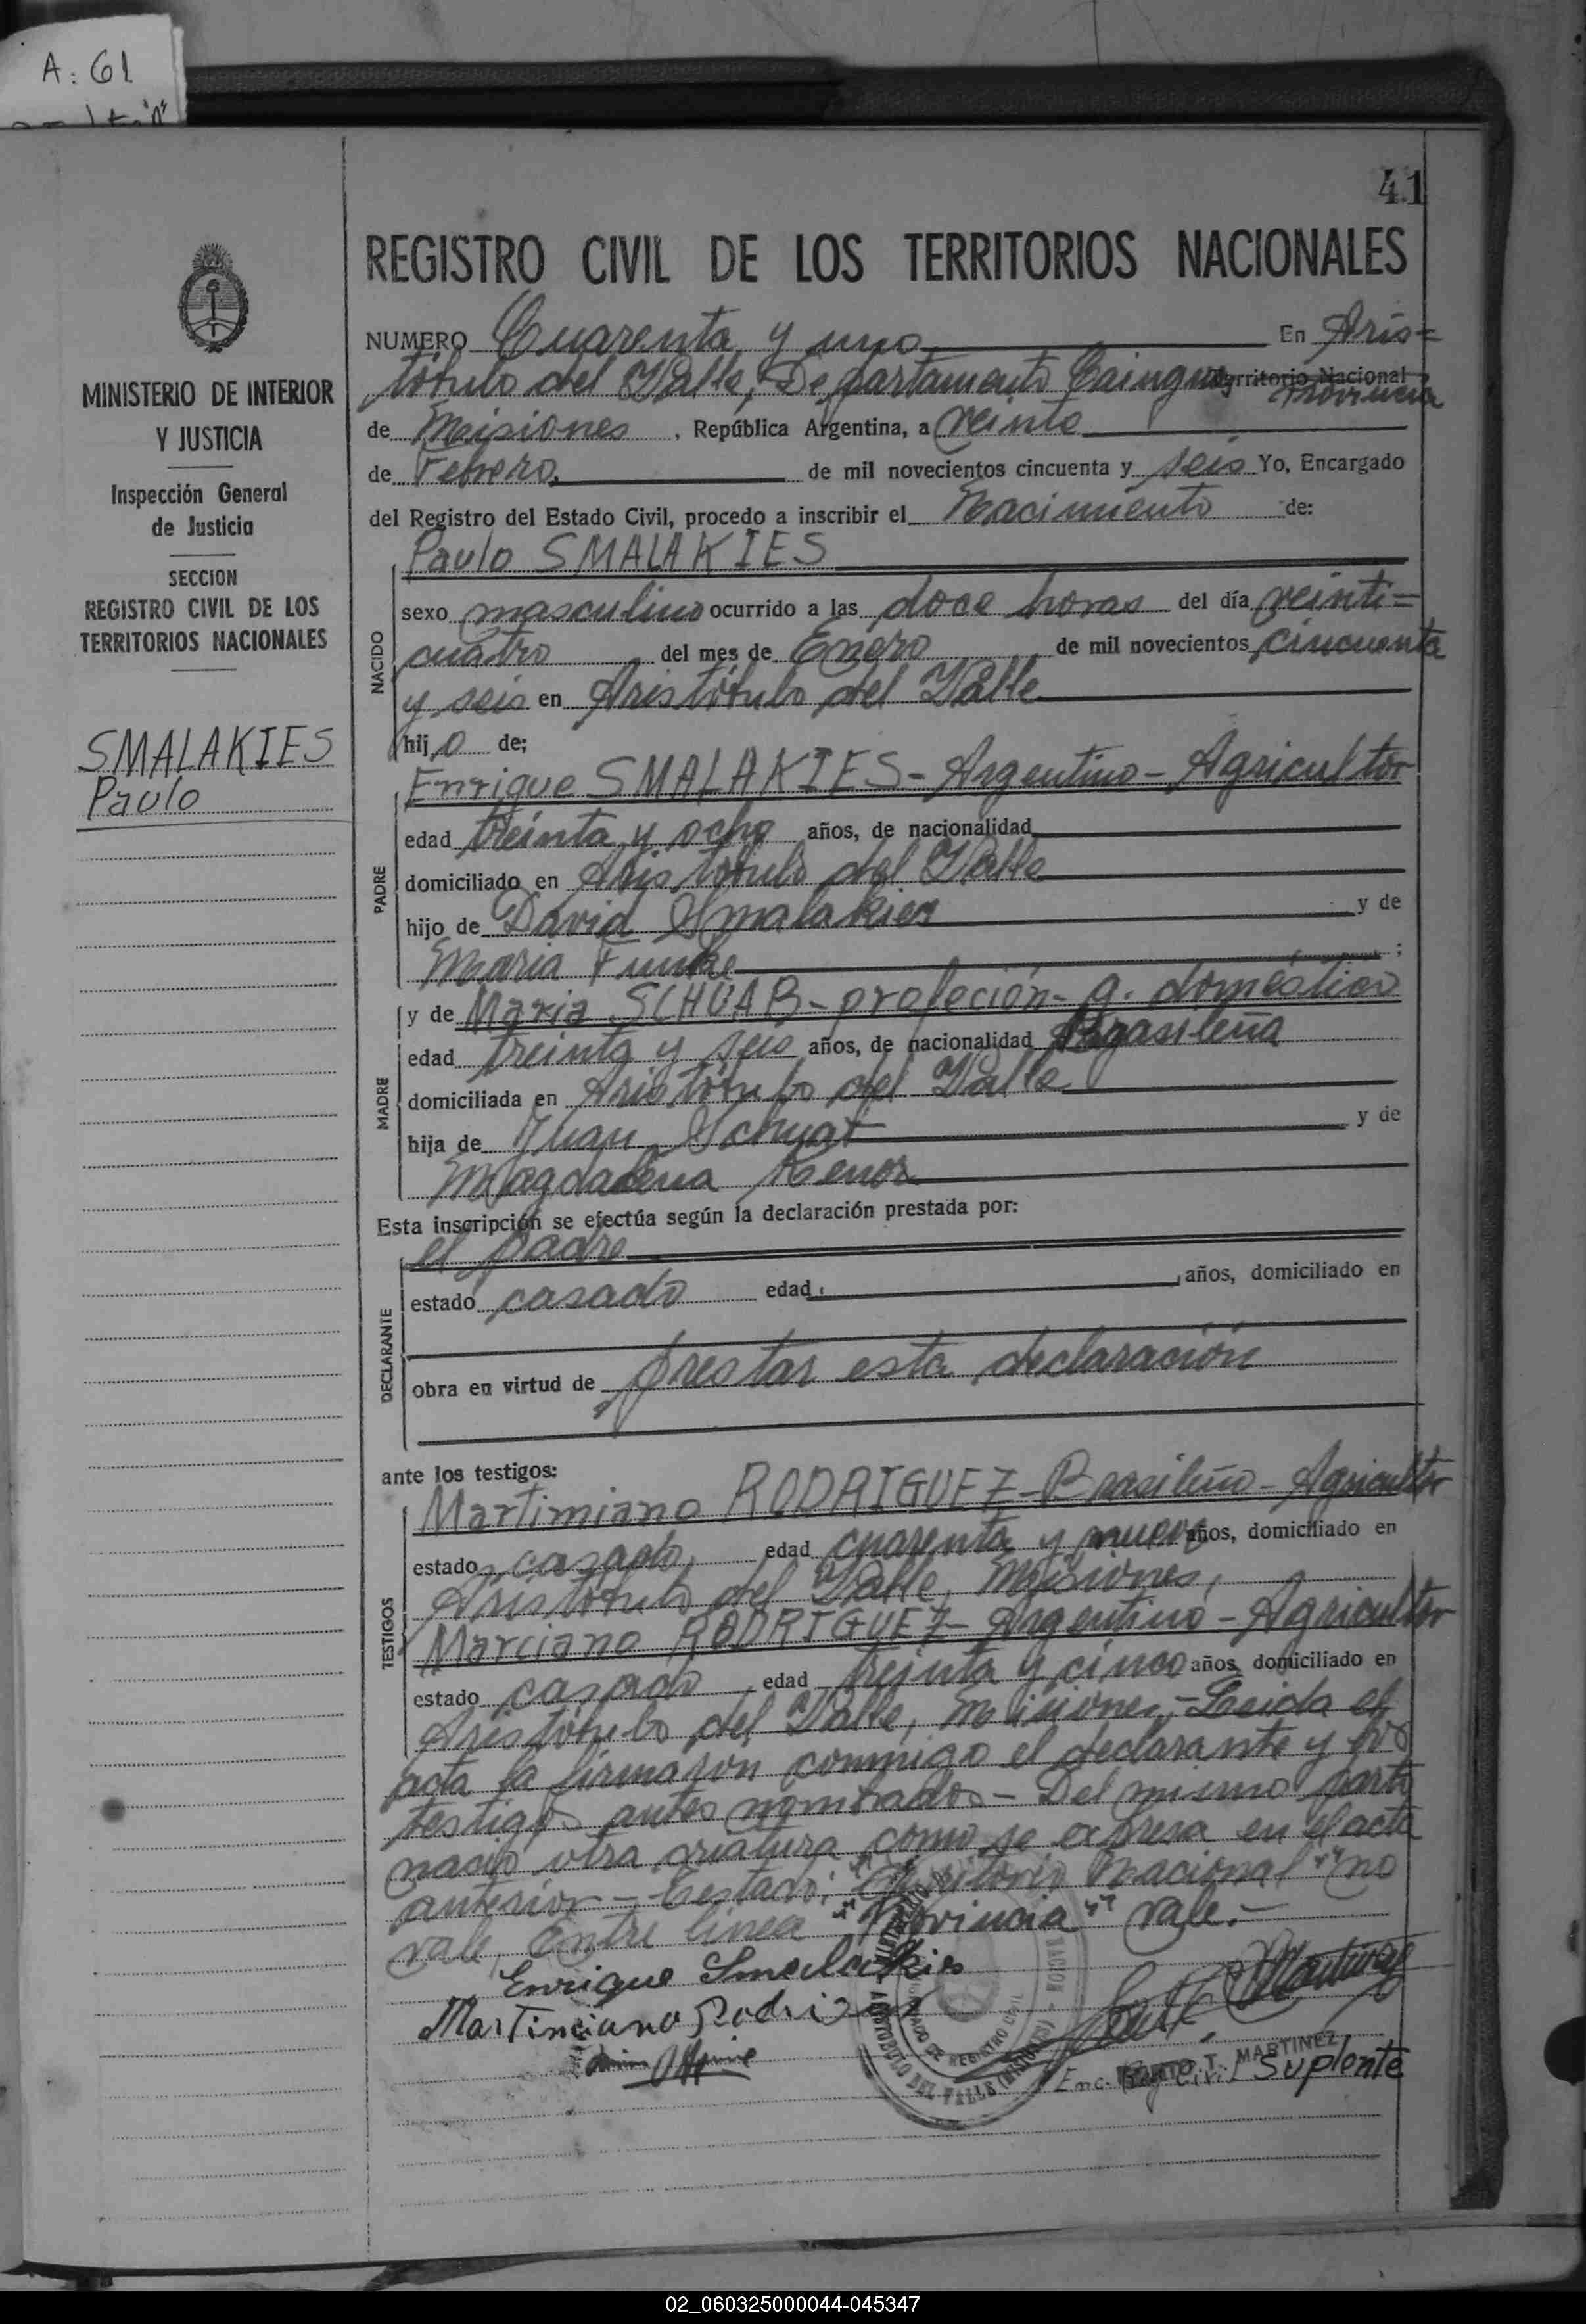 A: 61
41
REGISTRO CIVIL DE LOS TERRITORIOS NACIONALES
MINISTERIO DE INTERIOR
Y JUSTICIA
Inspección General
de Justicia
SECCION
REGISTRO CIVIL DE LOS
TERRITORIOS NACIONALES
SMALAKIES
Paulo
NUMERO Cuarenta y uno En Aris=
tóbulo del Valle, Departamento Cainguas Territorio Nacional Provincia
de Misiones, República Argentina, a veinte
de Febrero, de mil novecientos cincuenta y seis Yo, Encargado
del Registro del Estado Civil, procedo a inscribir el Nacimiento de:
NACIDO
Paulo SMALAKIES
sexo masculino ocurrido a las doce horas del día veinti=
cuatro del mes de Enero de mil novecientos cincuenta
y seis en Aristóbulo del Valle
hijo de;
PADRE
Enrique SMALAKIES - Argentino - Agricultor
edad treinta y ocho años, de nacionalidad
domiciliado en Aristóbulo del Valle
hijo de David Smalakies y de
Maria Funke ;
MADRE
y de Maria SCHUAB - profeción - q. domésticos
edad treinta y seis años, de nacionalidad Brasileña
domiciliada en Aristóbulo del Valle
hija de Juan Schuat y de
Magdalena
Esta inscripción se efectúa según la declaración prestada por:
DECLARANTE
el padre
estado casado edad, años, domiciliado en
obra en virtud de prestar esta declaración
ante los testigos:
TESTIGOS
Martimiano RODRIGUEZ - Brasileño - Agricultor
estado casado, edad cuarenta y nueve años, domiciliado en
Aristóbulo del Valle, Misiones,
Marciano RODRIGUEZ - Argentino - Agricultor
estado casado edad treinta y cinco años, domiciliado en
Aristóbulo del Valle, Misiones, - Leida el
acta la firmaron conmigo el declarante y los
testigos antes nombrados - Del mismo parto
nacio otra criatura como se expresa en el acta
anterior - Testado: "Territorio Nacional" no
vale, Entre linea "Provincia" vale. -
Enrique Smalakies
Martimiano Rodriguez
MARTINEZ
Enc. Reg. Civil Suplente
02_060325000044-045347